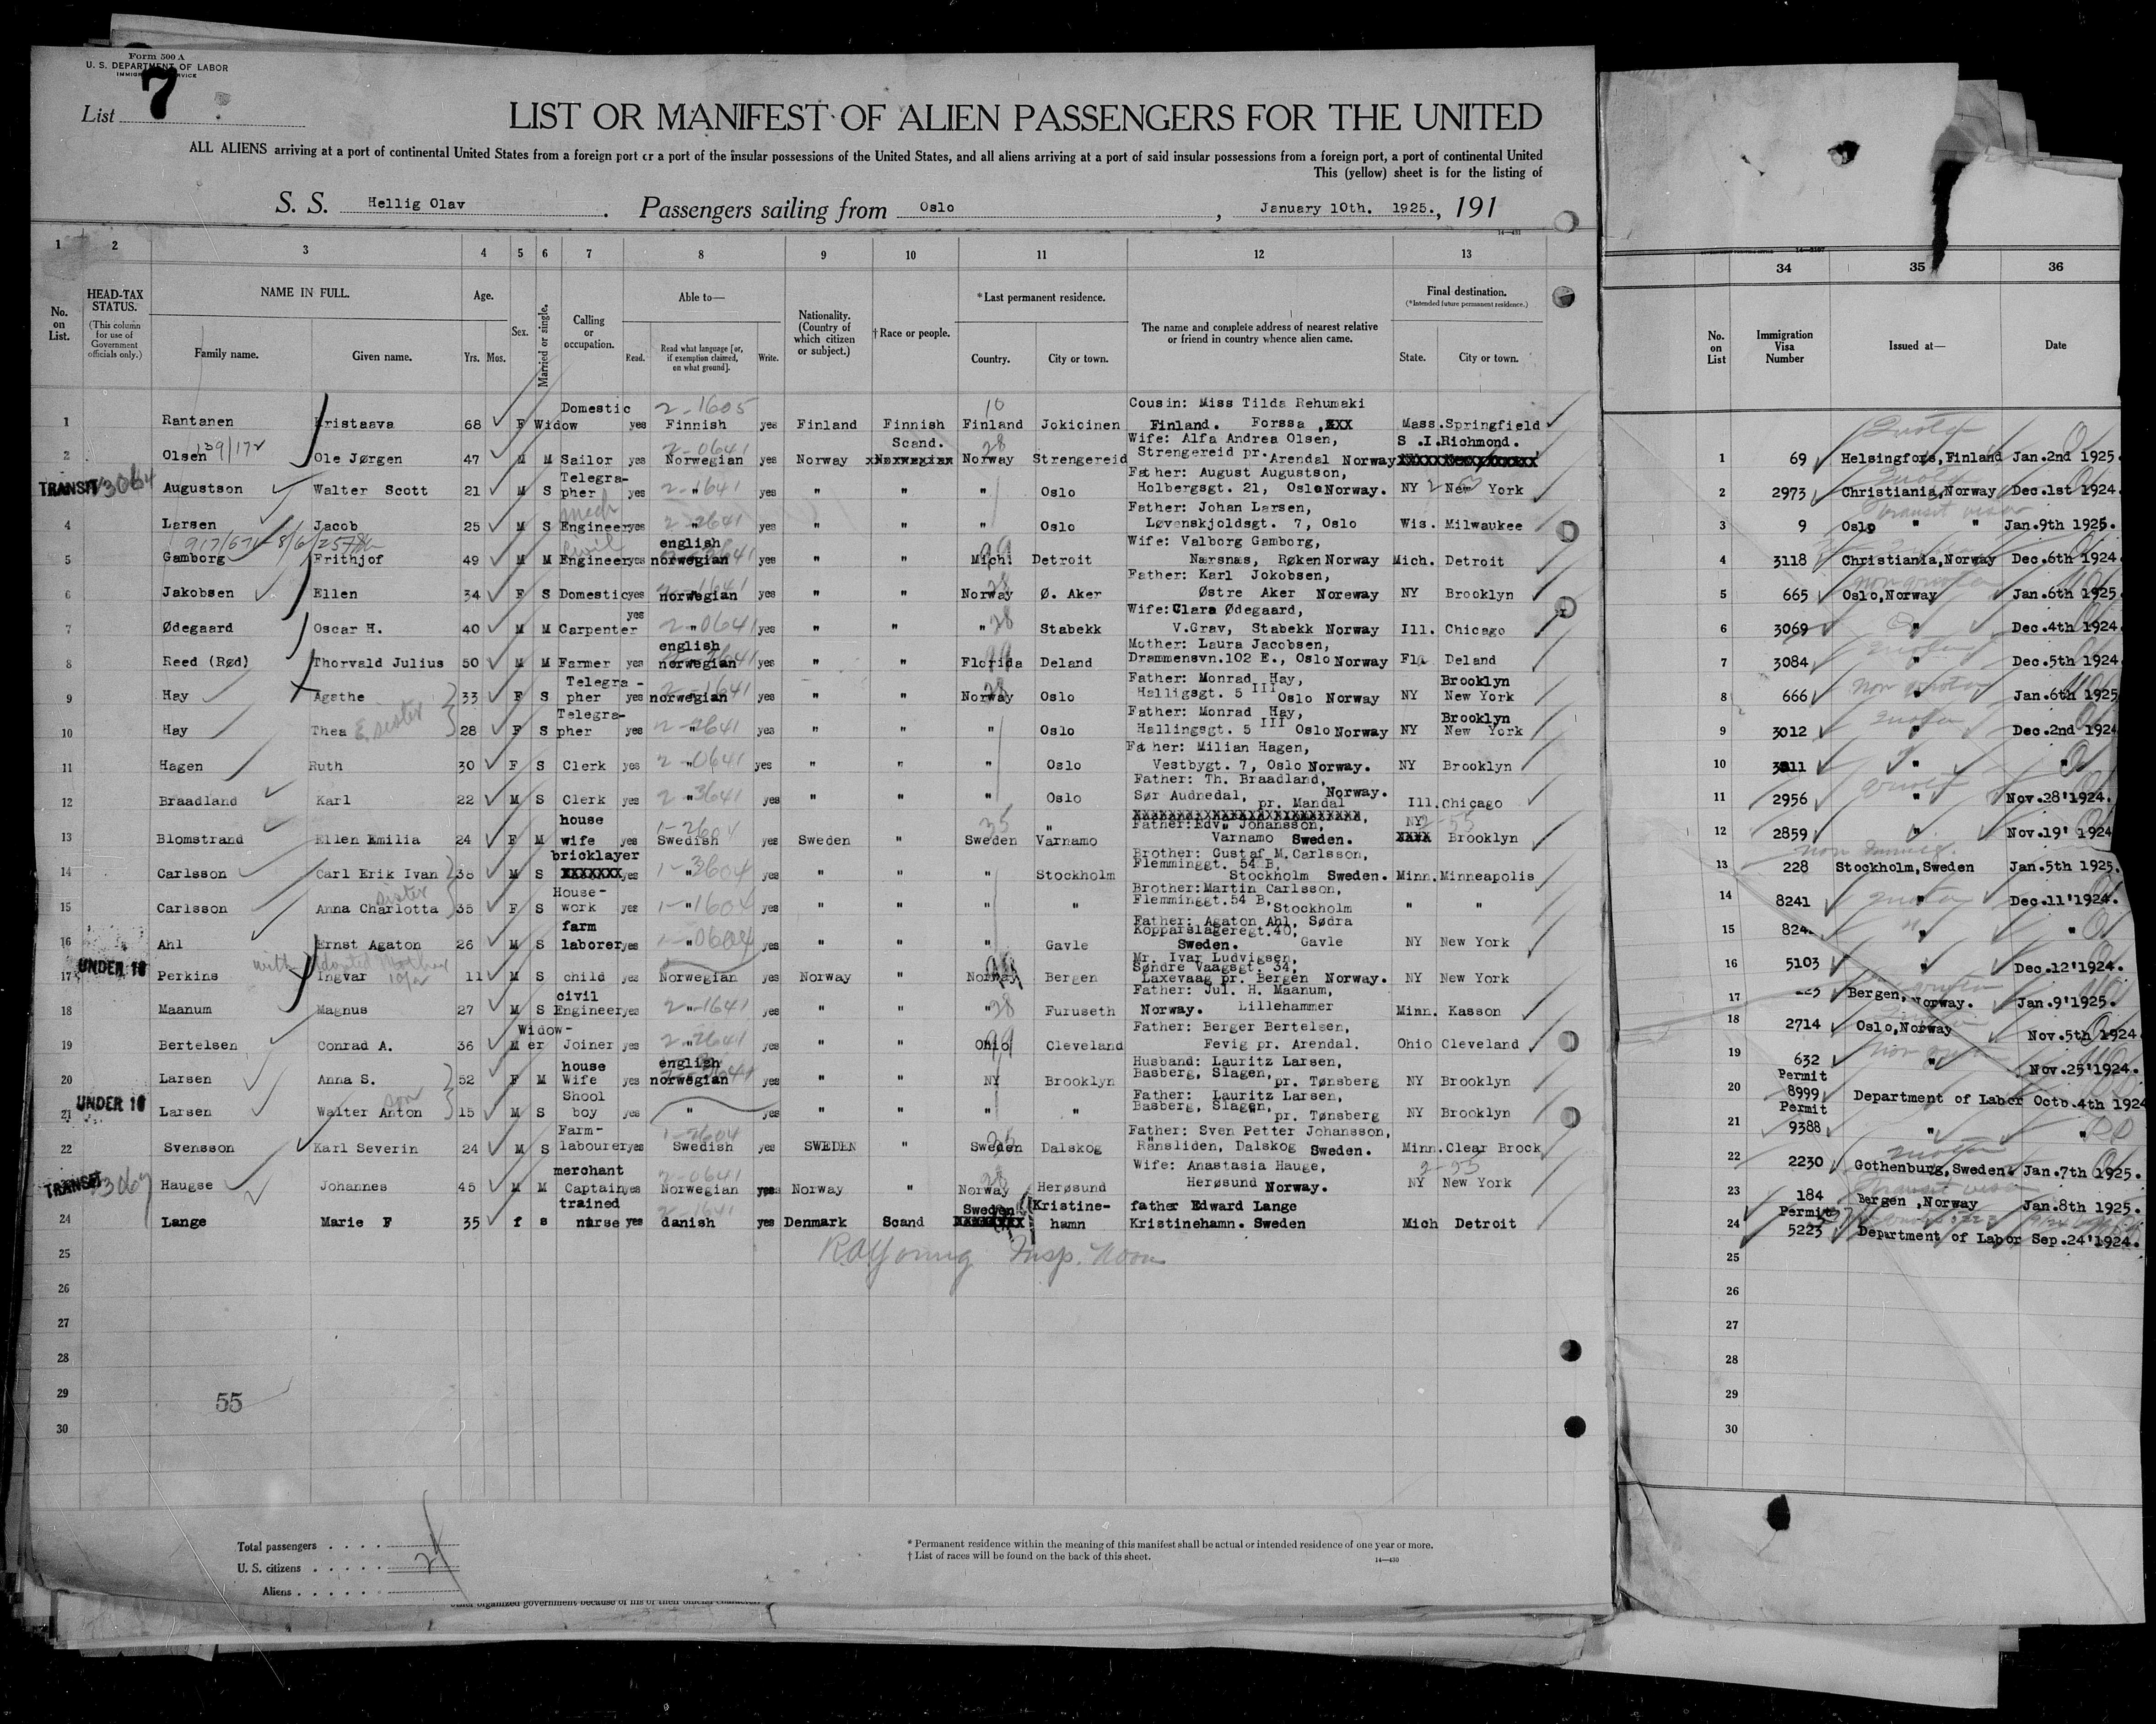 Form 500 A
U. S. DEPARTMENT OF LABOR
List 7
LIST OR MANIFEST OF ALIEN PASSENGERS FOR THE UNITED
ALL ALIENS arriving at a port of continental United States from a foreign port or a port of the insular possessions of the United States, and all aliens arriving at a port of said insular possessions from a foreign port, a port of continental United
This (yellow) sheet is for the listing of
S. S. Hellig Olav. Passengers sailing from Oslo, January 10th. 1925., 191
1 2 3 4 5 6 7 8 9 10 11 12 13
No. on List.
HEAD-TAX STATUS.
(This column for use of Government officials only.)
NAME IN FULL.
Family name. Given name.
Age.
Yrs. Mos.
Sex.
Married or single.
Calling or occupation.
Able to—
Read. Read what language [or, if exemption claimed, on what ground]. Write.
Nationality. (Country of which citizen or subject.)
†Race or people.
*Last permanent residence.
Country. City or town.
The name and complete address of nearest relative or friend in country whence alien came.
Final destination.
(*Intended future permanent residence.)
State. City or town.
1 Rantanen Kristaava 68 F Widow Domestic yes Finnish 2-1605 yes Finland Finnish Finland Jokicinen Cousin: Miss Tilda Rehumaki Finland. Forssa Mass. Springfield
2 Olsen Ole Jørgen 47 M M Sailor yes Norwegian 2-0641 yes Norway Scand. Norway Strengereid Wife: Alfa Andrea Olsen, Strengereid pr. Arendal Norway S.I. Richmond.
TRANSIT Augustson Walter Scott 21 M S Telegrapher yes " 2-1641 yes " " " Oslo Father: August Augustson, Holbergsgt. 21, Oslo Norway. NY New York
4 Larsen Jacob 25 M S mech Engineer yes " 2-2641 yes " " " Oslo Father: Johan Larsen, Løvenskjoldsgt. 7, Oslo Wis. Milwaukee
5 Gamborg Frithjof 49 M M Civil Engineer yes english norwegian yes " " Mich. Detroit Wife: Valborg Gamborg, Nærsnæs, Røken Norway Mich. Detroit
6 Jakobsen Ellen 34 F S Domestic yes norwegian yes " " Norway Ø. Aker Father: Karl Jokobsen, Østre Aker Noreway NY Brooklyn
7 Ødegaard Oscar H. 40 M M Carpenter yes " 2-0641 yes " " " Stabekk Wife: Clara Ødegaard, V.Grav, Stabekk Norway Ill. Chicago
8 Reed (Rød) Thorvald Julius 50 M M Farmer yes english norwegian yes " " Florida Deland Mother: Laura Jacobsen, Drammensvn.102 E., Oslo Norway Fla Deland
9 Hay Agathe 33 F S Telegra-pher yes norwegian yes " " Norway Oslo Father: Monrad Hay, Halligsgt. 5 III Oslo Norway NY Brooklyn New York
10 Hay Thea E sister 28 F S Telegra-pher yes " 2-2641 yes " " " Oslo Father: Monrad Hay, Hallingsgt. 5 III Oslo Norway NY Brooklyn New York
11 Hagen Ruth 30 F S Clerk yes " 2-0641 yes " " " Oslo Father: Milian Hagen, Vestbygt. 7, Oslo Norway. NY Brooklyn
12 Braadland Karl 22 M S Clerk yes " 2-3641 yes " " " Oslo Father: Th. Braadland, Sør Audnedal, pr. Mandal Norway. Ill. Chicago
13 Blomstrand Ellen Emilia 24 F M house wife yes Swedish 1-2604 yes Sweden " Sweden Varnamo Father: Edv. Johansson, Varnamo Sweden. NY Brooklyn
14 Carlsson Carl Erik Ivan 38 M S bricklayer yes " 1-3604 yes " " " Stockholm Brother: Gustaf M. Carlsson, Flemminggt. 54 B, Stockholm Sweden. Minn. Minneapolis
15 Carlsson Anna Charlotta sister 35 F S House-work yes " 1-1604 yes " " " " Brother: Martin Carlsson, Flemminggt. 54 B, Stockholm " "
16 Ahl Ernst Agaton 26 M S farm laborer yes " 1-0604 yes " " " Gavle Father: Agaton Ahl, Sødra Kopparslageregt. 40, Gavle Sweden. NY New York
UNDER 16 17 Perkins Ingvar with adopted Mother 11 M S child yes Norwegian yes Norway " Norway Bergen Mr. Ivar Ludvigsen, Søndre Vaagsgt. 34, Laxevaag pr. Bergen Norway. NY New York
18 Maanum Magnus 27 M S civil Engineer yes " 2-1641 yes " " " Furuseth Father: Jul. H. Maanum, Norway. Lillehammer Minn. Kasson
19 Bertelsen Conrad A. 36 M Widow-er Joiner yes " 2-2641 yes " " Ohio Cleveland Father: Berger Bertelsen, Fevig pr. Arendal. Ohio Cleveland
20 Larsen Anna S. 52 F M house Wife yes english norwegian yes " " NY Brooklyn Husband: Lauritz Larsen, Basberg, Slagen, pr. Tønsberg NY Brooklyn
UNDER 16 21 Larsen Walter Anton son 15 M S Shool boy yes " yes " " " " Father: Lauritz Larsen, Basberg, Slagen, pr. Tønsberg NY Brooklyn
22 Svensson Karl Severin 24 M S Farm-labourer yes Swedish 1-2604 yes SWEDEN " Sweden Dalskog Father: Sven Petter Johansson, Ränsliden, Dalskog Sweden. Minn. Clear Brock
TRANSIT Haugse Johannes 45 M M merchant Captain yes Norwegian 2-0641 yes Norway " Norway Herøsund Wife: Anastasia Hauge, Herøsund Norway. NY New York
24 Lange Marie F 35 f s trained nurse yes danish 2-1641 yes Denmark Scand Sweden Kristine-hamn father Edward Lange Kristinehamn. Sweden Mich Detroit
25
26
27
28
29
30
55
Total passengers
U. S. citizens
Aliens
* Permanent residence within the meaning of this manifest shall be actual or intended residence of one year or more.
† List of races will be found on the back of this sheet.
14—430
34 35 36
No. on List
Immigration Visa Number
Issued at—
Date
1 69 Helsingfors, Finland Jan. 2nd 1925.
2 2973 Christiania, Norway Dec. 1st 1924.
3 9 Oslo " " Jan. 9th 1925.
4 3118 Christiania, Norway Dec. 6th 1924.
5 665 Oslo, Norway Jan. 6th 1925.
6 3069 " Dec. 4th 1924.
7 3084 " Dec. 5th 1924.
8 666 " Jan. 6th 1925
9 3012 " Dec. 2nd 1924
10 3011 " "
11 2956 " Nov. 28'1924.
12 2859 " Nov. 19' 1924
13 228 Stockholm, Sweden Jan. 5th 1925.
14 8241 " Dec. 11'1924.
15 " "
16 5103 " Dec. 12'1924.
17 Bergen, Norway. Jan. 9'1925.
18 2714 Oslo, Norway Nov. 5th 1924
19 632 " Nov. 25'1924.
20 Permit 8999 Department of Labor Octb. 4th 1924
21 Permit 9388 " "
22 2230 Gothenburg, Sweden Jan. 7th 1925.
23 184 Bergen, Norway Jan. 8th 1925.
24 Permit 5223 Department of Labor Sep. 24'1924.
25
26
27
28
29
30